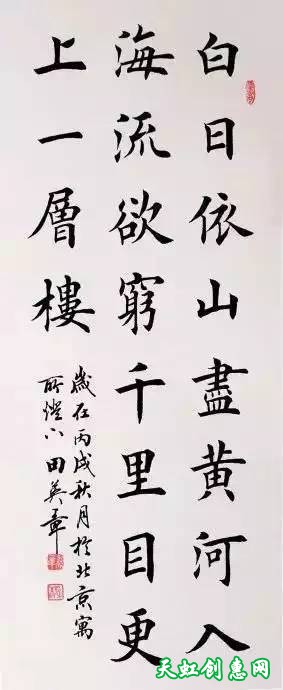 白日依山盡黄河入
海流欲窮千里目更
上一層樓
歲在丙戌秋月於北京寓
所燈下田英章
天虹创意网